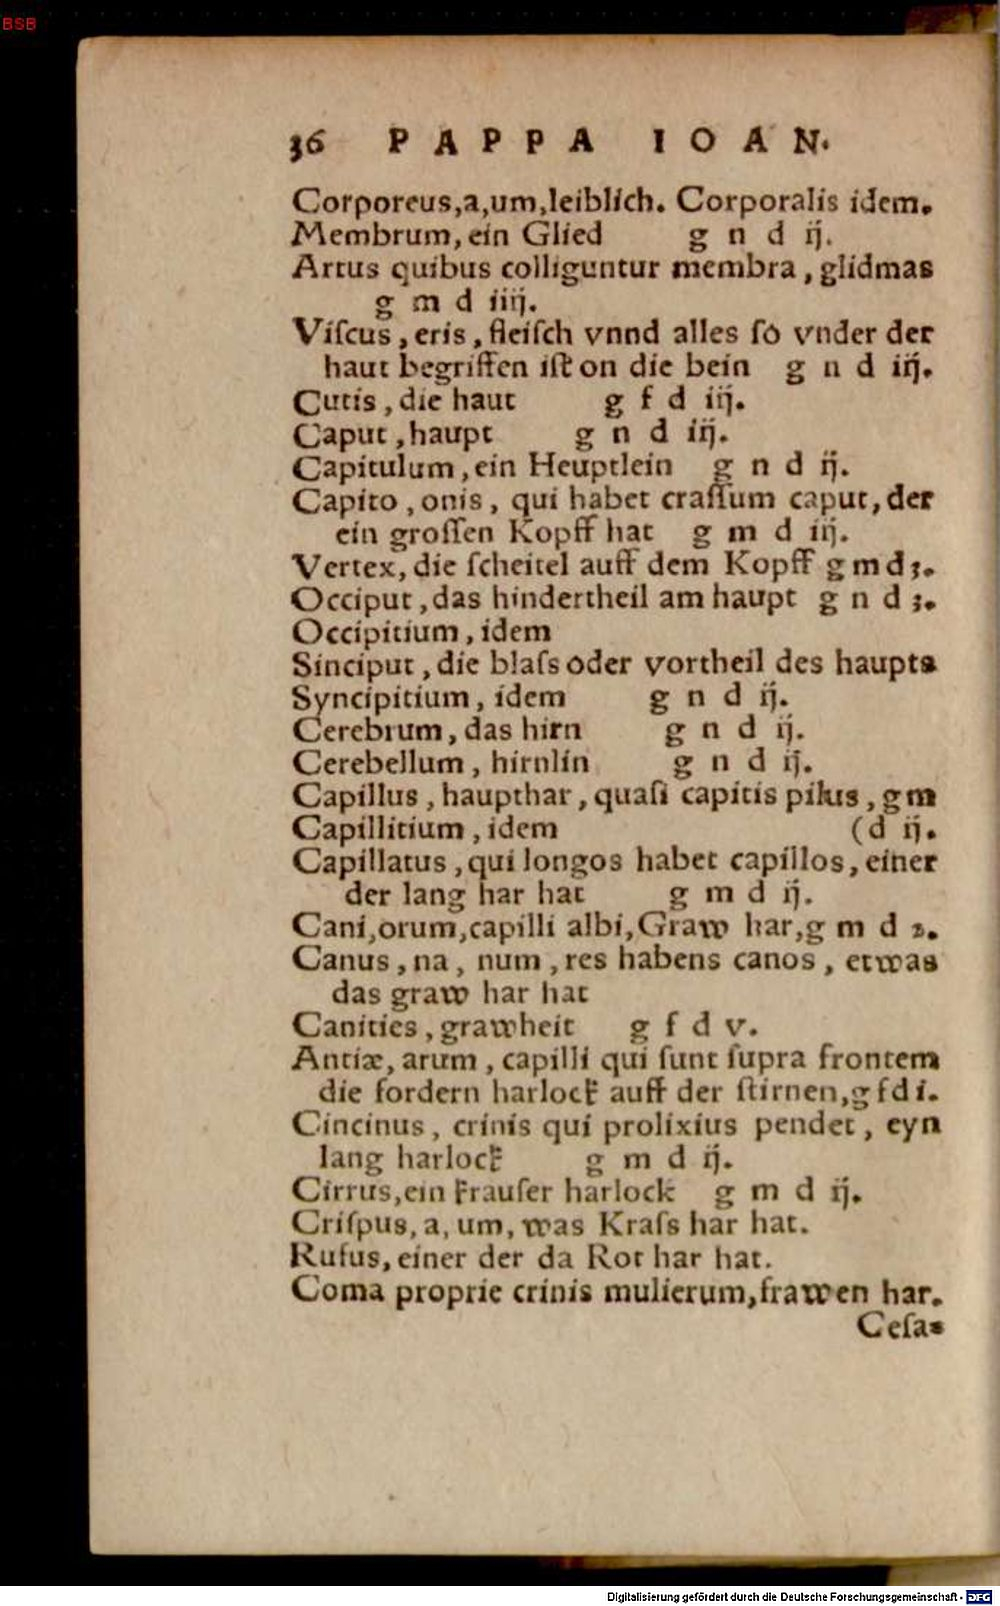 BSB
36 PAPPA IOAN.
Corporeus,a,um,leiblich. Corporalis idem.
Membrum, ein Glied g n d ij.
Artus quibus colliguntur membra, glidmas
g m d iiij.
Viſcus, eris, fleiſch vnnd alles ſo vnder der
haut begriffen iſt on die bein g n d iij.
Cutis, die haut g f d iij.
Caput, haupt g n d iij.
Capitulum, ein Heuptlein g n d ij.
Capito, onis, qui habet craſſum caput, der
ein groſſen Kopff hat g m d iij.
Vertex, die ſcheitel auff dem Kopff g m d 3.
Occiput, das hindertheil am haupt g n d 3.
Occipitium, idem
Sinciput, die blaſs oder vortheil des haupts
Syncipitium, idem g n d ij.
Cerebrum, das hirn g n d ij.
Cerebellum, hirnlin g n d ij.
Capillus, haupthar, quaſi capitis pilus, g m
Capillitium, idem (d ij.
Capillatus, qui longos habet capillos, einer
der lang har hat g m d ij.
Cani,orum,capilli albi,Graw har,g m d 2.
Canus, na, num, res habens canos, etwas
das graw har hat
Canities, grawheit g f d v.
Antiæ, arum, capilli qui ſunt ſupra frontem
die fordern harlock auff der ſtirnen,g f d i.
Cincinus, crinis qui prolixius pendet, eyn
lang harlock g m d ij.
Cirrus,ein krauſer harlock g m d ij.
Criſpus, a, um, was Kraſs har hat.
Rufus, einer der da Rot har hat.
Coma proprie crinis mulierum,frawen har.
Ceſa-
Digitalisierung gefördert durch die Deutsche Forschungsgemeinschaft - DFG